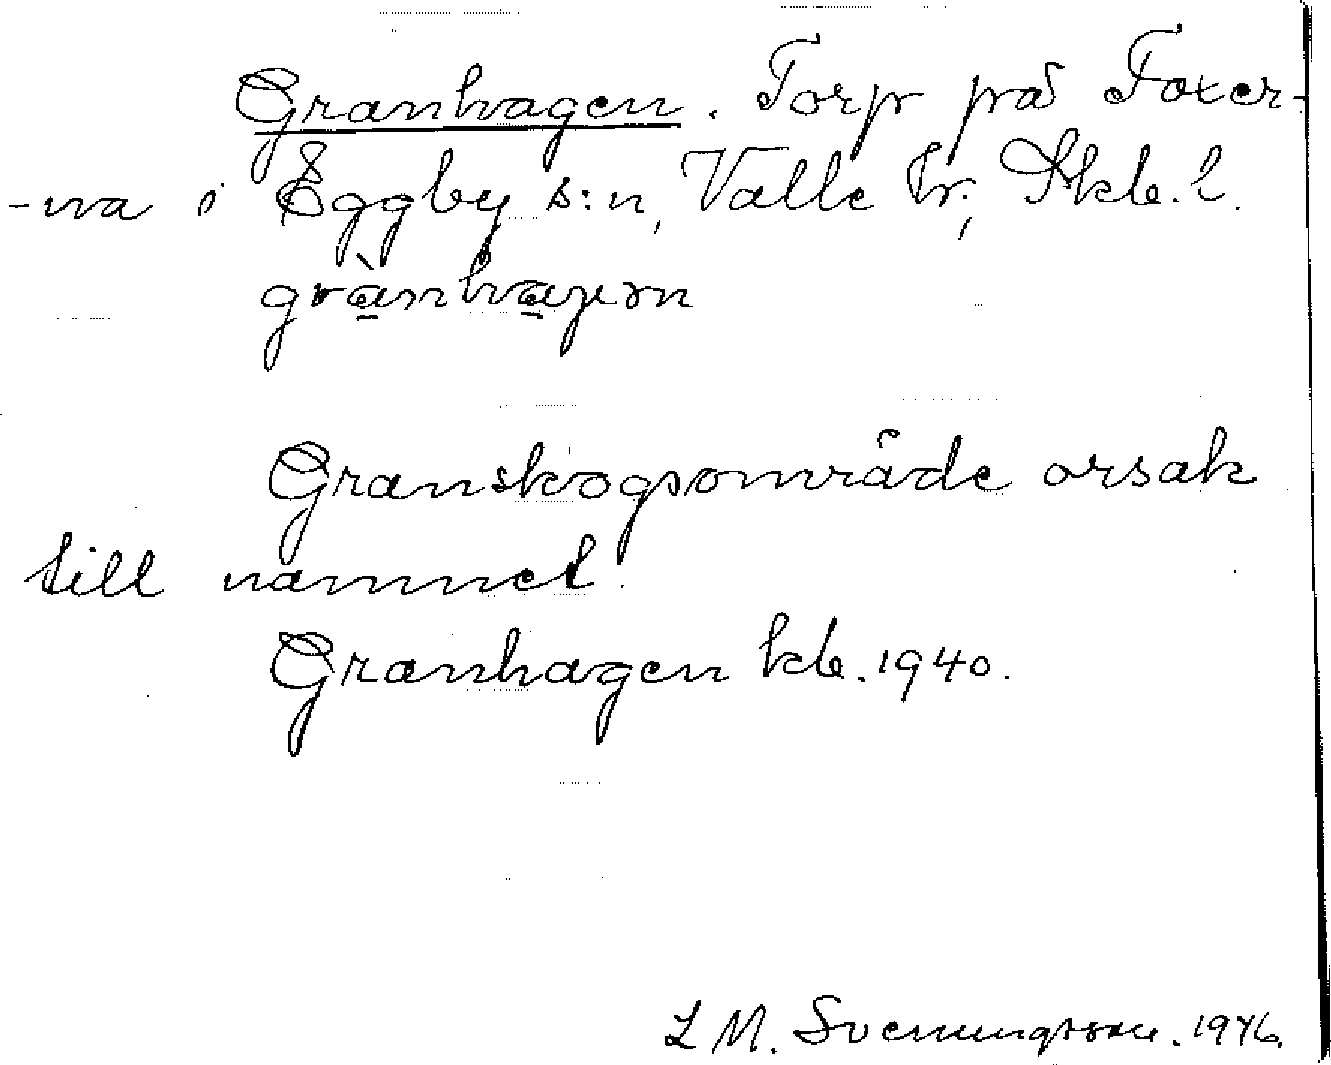 Granhagen. Torp på Foxer-
-na i Eggby s:n, Valle hr., Skb. l.
grànhaɡen
Granskogsområde orsak
till namnet.
Granhagen kb. 1940.
L M. Svenungsson. 1946.